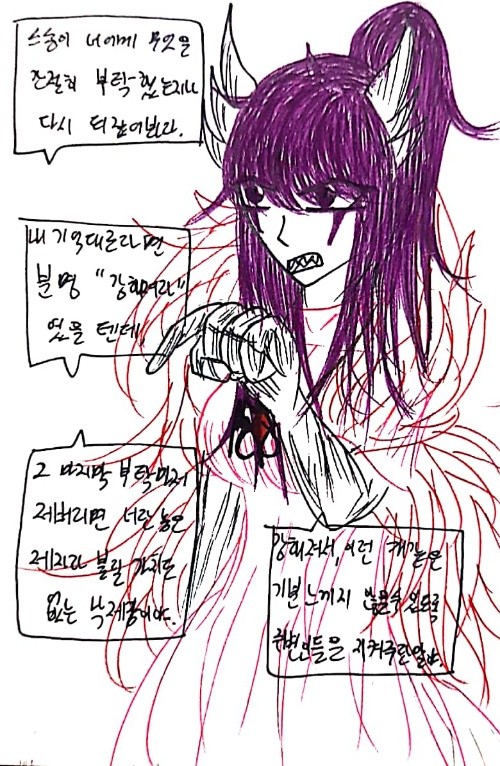 스승이 너에게 무엇을
간절히 부탁했는지나
다시 되짚어봐라.
내 기억대로라면
분명 "강해져라"
였을 텐데.
그 마지막 부탁마저
저버리면 너란 놈은
제자라 불릴 가치도
없는 낙제생이야.
강해져서, 이런 개같은
기분 느끼지 않을 수 있도록
주변인들을 지켜주란 말야.